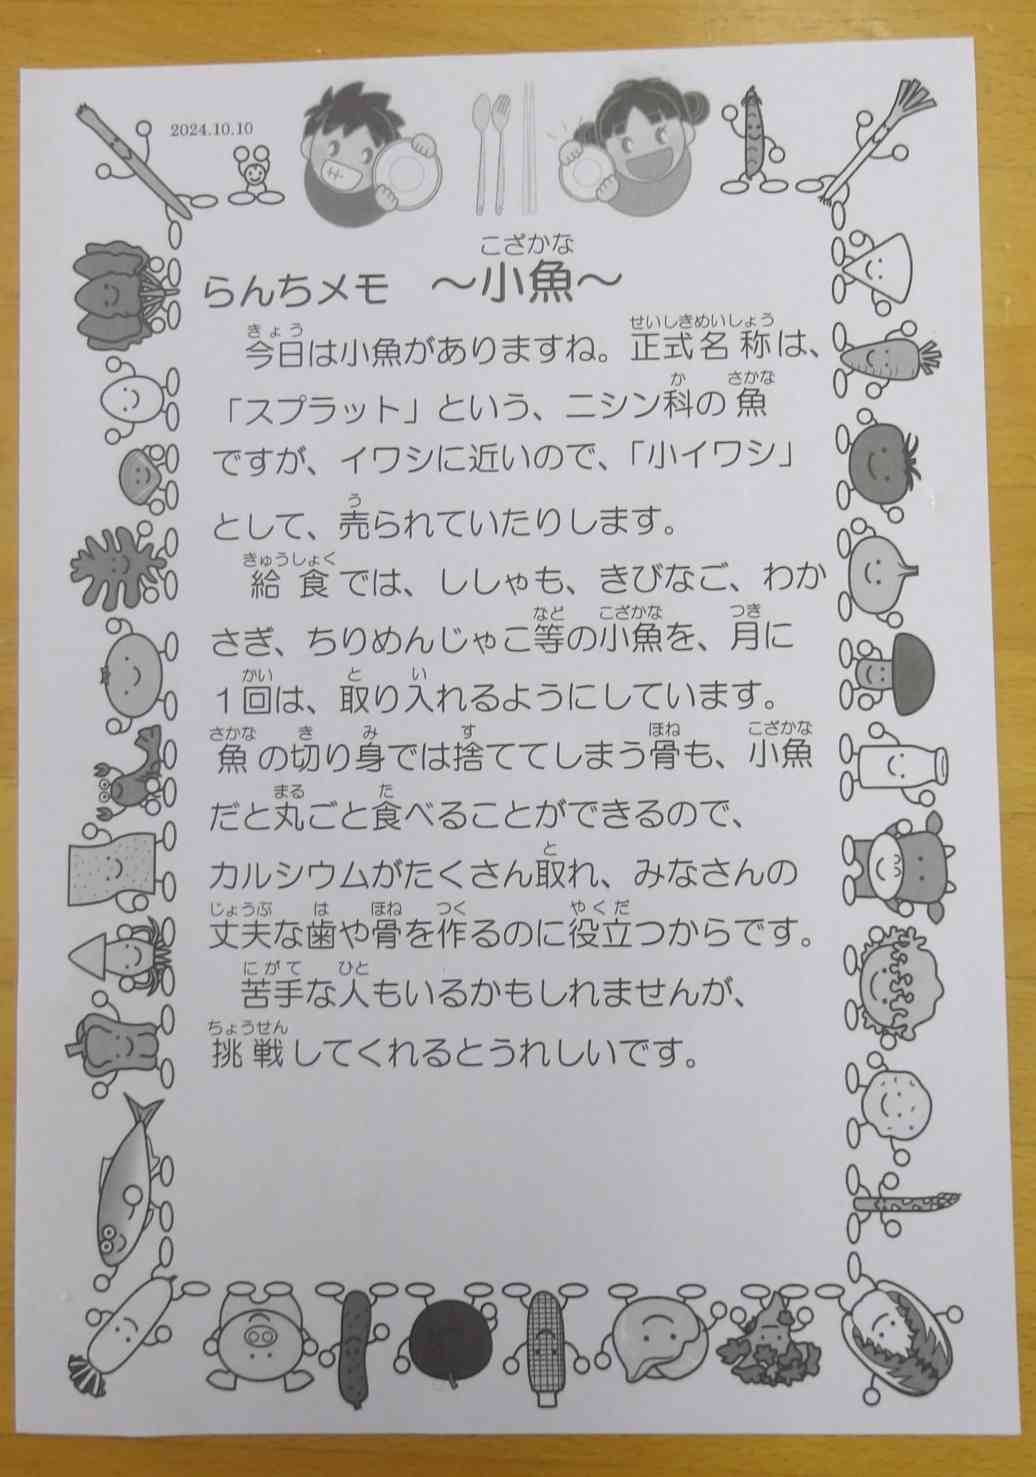 2024.10.10
こざかな
らんちメモ ～小魚～
きょう せいしきめいしょう
今日は小魚がありますね。正式名称は、
か さかな
「スプラット」という、ニシン科の魚
ですが、イワシに近いので、「小イワシ」
う
として、売られていたりします。
きゅうしょく
給食では、ししゃも、きびなご、わか
など こざかな つき
さぎ、ちりめんじゃこ等の小魚を、月に
かい と い
１回は、取り入れるようにしています。
さかな き み す ほね こざかな
魚の切り身では捨ててしまう骨も、小魚
まる た
だと丸ごと食べることができるので、
と
カルシウムがたくさん取れ、みなさんの
じょうぶ は ほね つく やくだ
丈夫な歯や骨を作るのに役立つからです。
にがて ひと
苦手な人もいるかもしれませんが、
ちょうせん
挑戦してくれるとうれしいです。